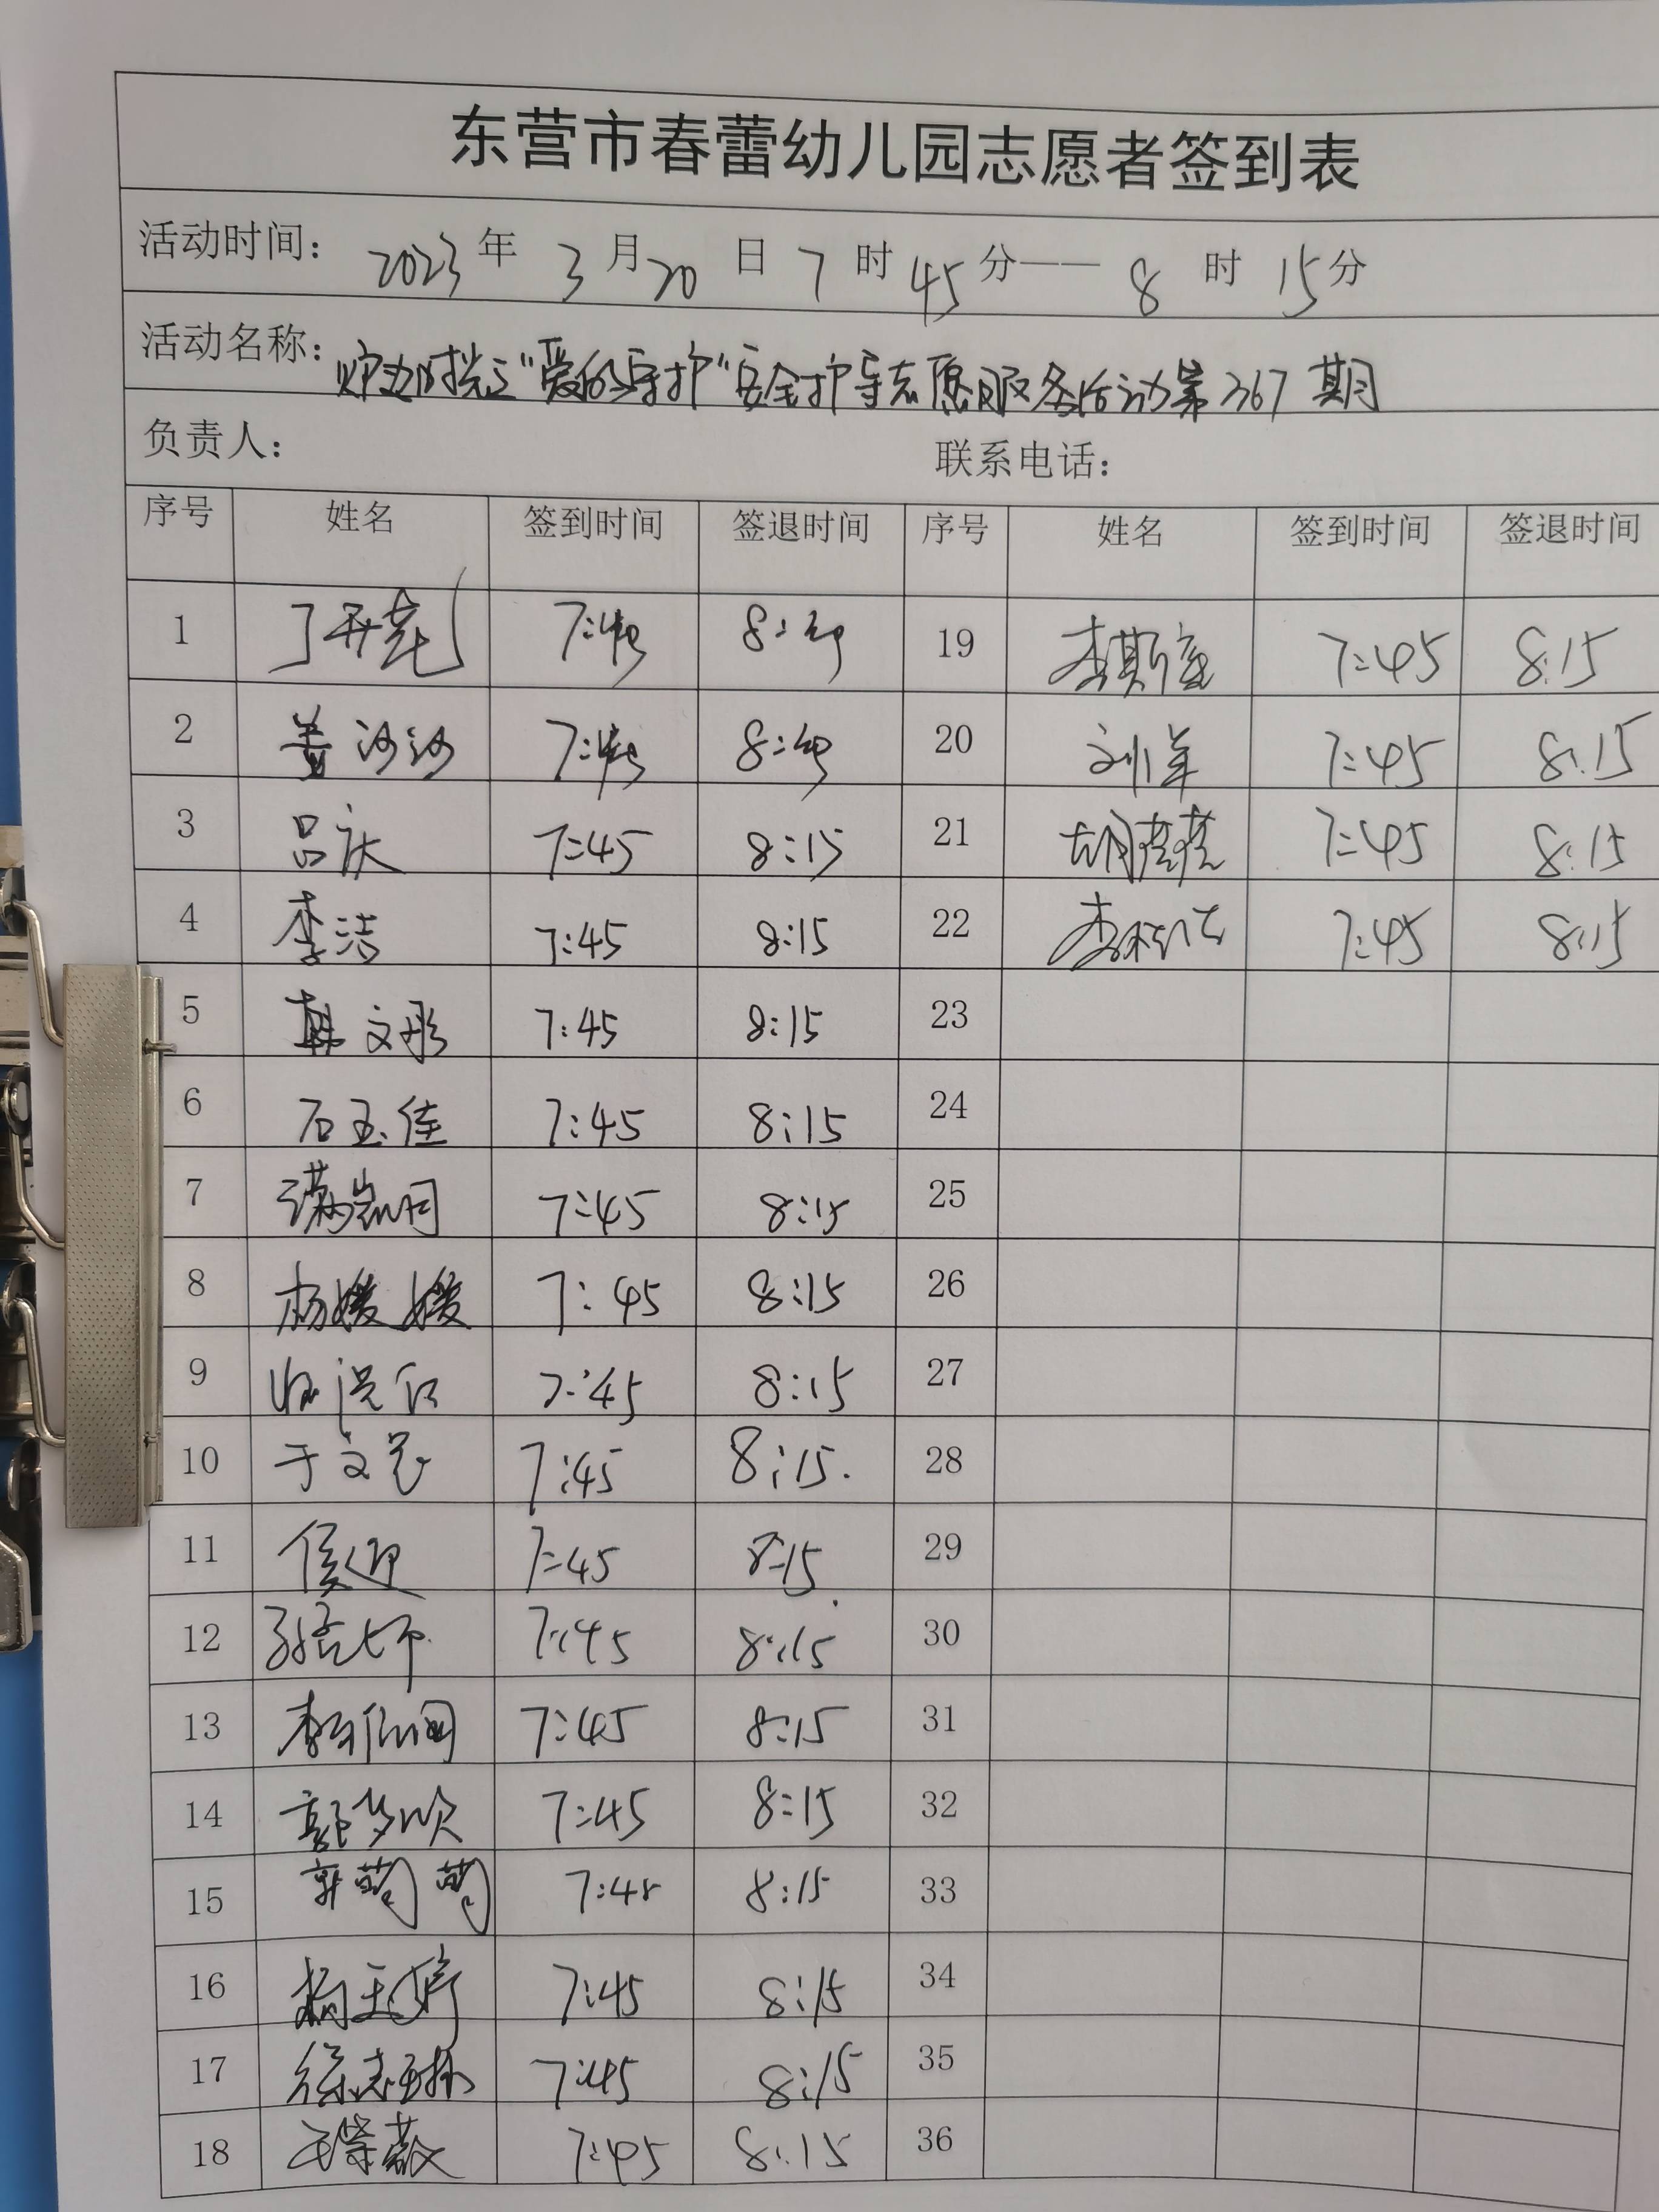 东营市春蕾幼儿园志愿者签到表
活动时间: 2023 年 3 月 20 日 7 时 45 分—— 8 时 15 分
活动名称: "爱的守护"安全护导志愿服务活动第267期
负责人: 联系电话:
序号 姓名 签到时间 签退时间 序号 姓名 签到时间 签退时间
1 7:45 19 7:45 8:15
2 姜沙沙 7:45 20 刘军 7:45 8:15
3 吕庆 7:45 8:15 21 7:45 8:15
4 李洁 7:45 8:15 22 7:45 8:15
5 韩文彤 7:45 8:15 23
6 石玉佳 7:45 8:15 24
7 7:45 8:15 25
8 杨媛媛 7:45 8:15 26
9 7:45 8:15 27
10 7:45 8:15. 28
11 侯迎 7:45 8:15 29
12 7:45 8:15 30
13 7:45 8:15 31
14 郭梦欣 7:45 8:15 32
15 郭萄萄 7:45 8:15 33
16 杨玉婷 7:45 8:15 34
17 7:45 8:15 35
18 王紫薇 7:45 8:15 36